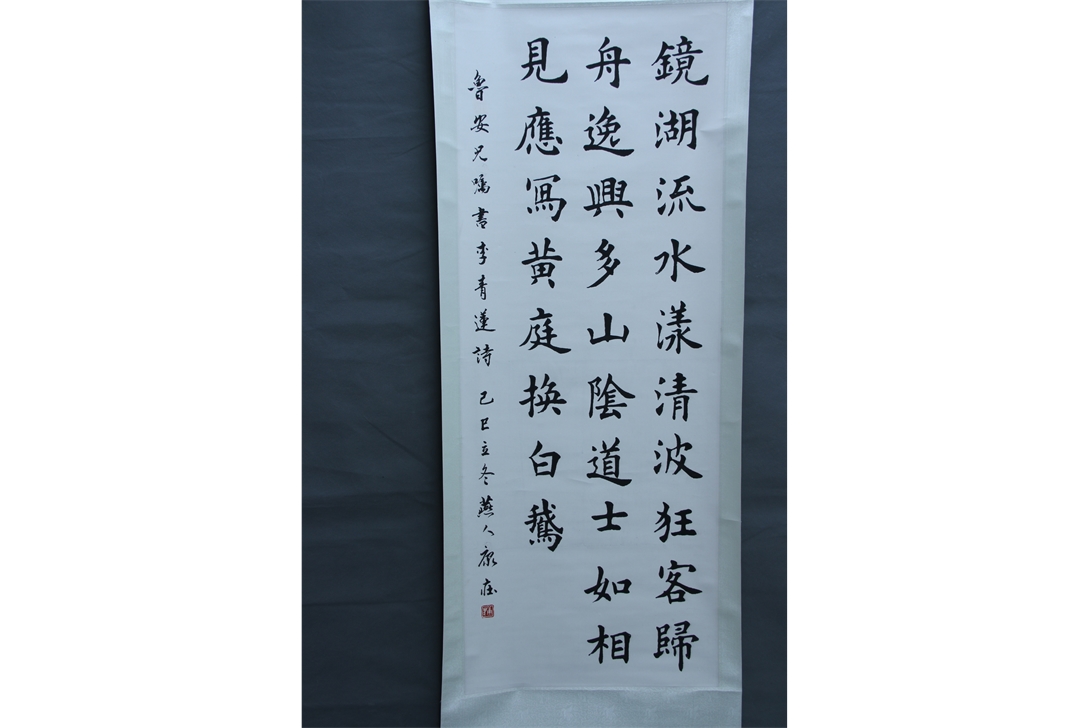 鏡湖流水漾清波狂客歸
舟逸興多山陰道士如相
見應寫黃庭換白鵝
魯安兄囑書李青蓮詩 己巳立冬燕人康莊